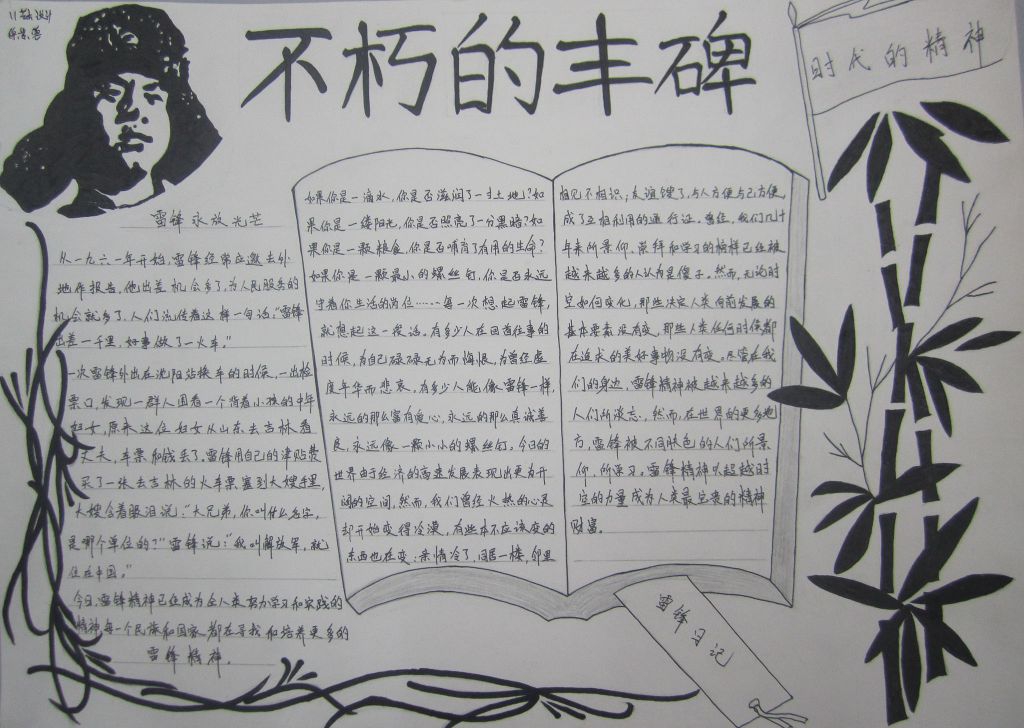 不朽的丰碑
时代的精神
雷锋永放光芒
从一九六一年开始,雷锋经常应邀去外
地作报告,他出差机会多了,为人民服务的
机会就多了,人们流传着这样一句话:"雷锋
出差一千里,好事做了一火车。"
一次雷锋外出在沈阳站换车的时候,一出检
票口,发现一群人围着一个背着小孩的中年
妇女,原来这位妇女从山东去吉林看
丈夫,车票和钱丢了。雷锋用自己的津贴费
买了一张去吉林的火车票塞到大嫂手里,
大嫂含着眼泪说:"大兄弟,你叫什么名字,
是哪个单位的?"雷锋说:"我叫解放军,就
住在中国。"
今日,雷锋精神已经成为全人类努力学习和实践的
精神每一个民族和国家都在寻找和培养更多的
雷锋精神。
如果你是一滴水,你是否滋润了一寸土地?如
果你是一缕阳光,你是否照亮了一分黑暗?如
果你是一颗粮食,你是否哺育了有用的生命?
如果你是一颗最小的螺丝钉,你是否永远
守着你生活的岗位……每一次想起雷锋,
就想起这一段话。有多少人在回首往事的
时候,为自己碌碌无为而悔恨,为曾经虚
度年华而悲哀,有多少人能像雷锋一样,
永远的那么富有爱心,永远的那么真诚善
良,永远像一颗小小的螺丝钉。今日的
世界由于经济的高速发展表现出更为开
阔的空间,然而,我们曾经火热的心灵
却开始变得冷漠,有些本不应该变的
东西也在变:亲情冷了,同居一楼,邻里
相见不相识;友谊馊了,与人方便与己方便
成了互相利用的通行证。曾经,我们几十
年来所景仰、崇拜和学习的榜样已经被
越来越多的人认为是傻子。然而,无论时
空如何变化,那些决定人类向前发展的
基本要素没有变,那些人类任何时候都
在追求的美好事物没有变。尽管在我
们的身边,雷锋精神被越来越多的
人们所淡忘,然而,在世界的更多地
方,雷锋被不同肤色的人们所景
仰,所学习。雷锋精神以超越时
空的力量成为人类最宝贵的精神
财富。
雷锋日记